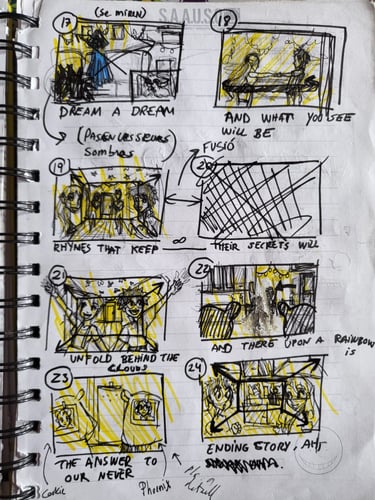 17 (SE MIREN)
SAAUSS
18
DREAM A DREAM
AND WHAT YOU SEE
WILL BE
Sombras)
FUSIÓ
19
20
RHYMES THAT KEEP
THEIR SECRETS WILL
21
22
UNFOLD BEHIND THE
CLOUDS
AND THERE UPON A RAINBOW
IS
23
24
THE ANSWER TO
OUR NEVER
ENDING STORY, AH
Cookie
Phoenix